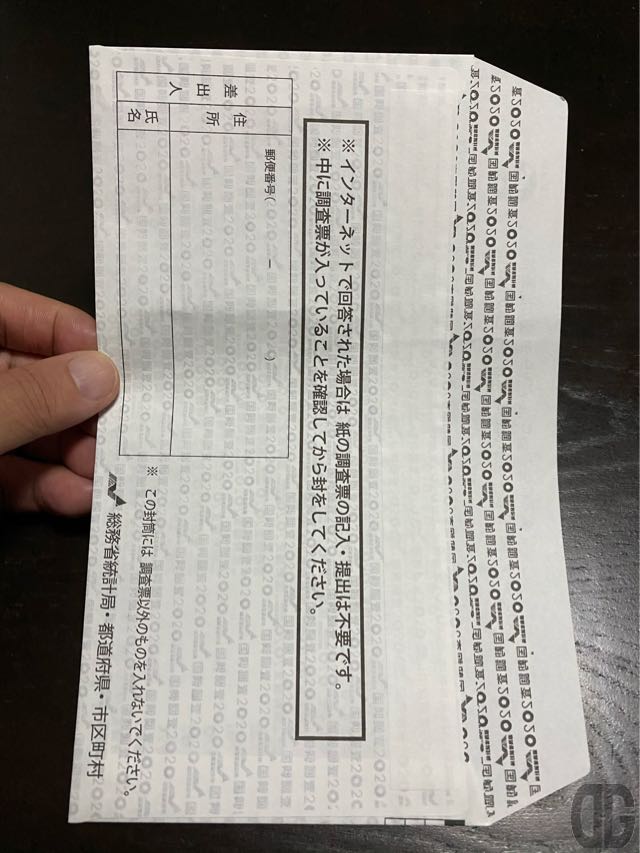 ※ インターネットで回答された場合は 紙の調査票の記入・提出は不要です。
※ 中に調査票が入っていることを確認してから封をしてください。
差出人
住所
郵便番号( － )
氏名
※ この封筒には 調査票以外のものを入れないでください。
総務省統計局・都道府県・市区町村
国勢調査2020